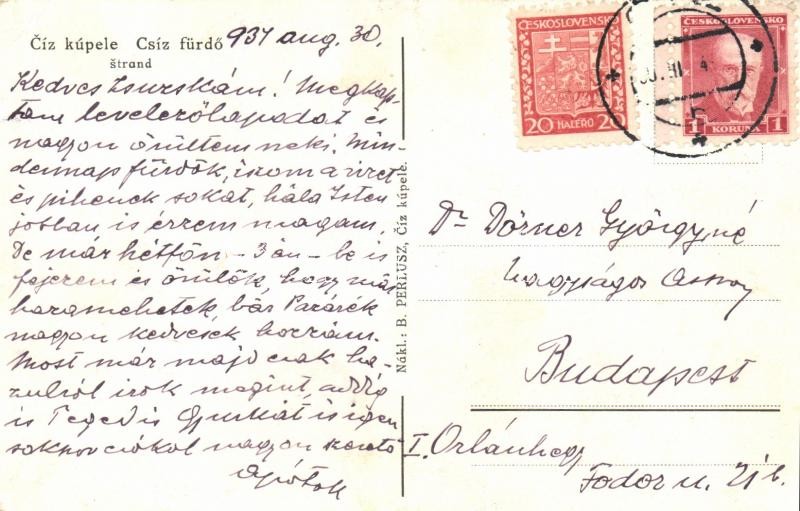 Číz kúpele Csíz fürdő 937 aug. 30.
štrand
Kedves Zsuzskám! Megkap-
tam levelezőlapodat és
nagyon örültem neki. Min-
dennap fürdök, iszom a vizet
és pihenek sokat, hála Isten
jobban is érzem magam.
De már hétfőn - 3án - be is
fejezem és örülök, hogy már
hazamehetek, bár Pazárék
nagyon kedvesek hozzám.
Most már majd csak ha-
zulról irok megint, addig
is Téged is Gyurkát is igen
sokszor csókol nagyon szerető
Apótok
Nákl.: B. PERLUSZ, Číz kúpele.
ČESKOSLOVENSKO
20 HALÉŘŮ 20
ČESKOSLOVENSKO
1 KORUNA 1
Dr Dörner Györgyné
nagyságos Asszony
Budapest
I. Orbánhegy
Fodor u. 21 b.